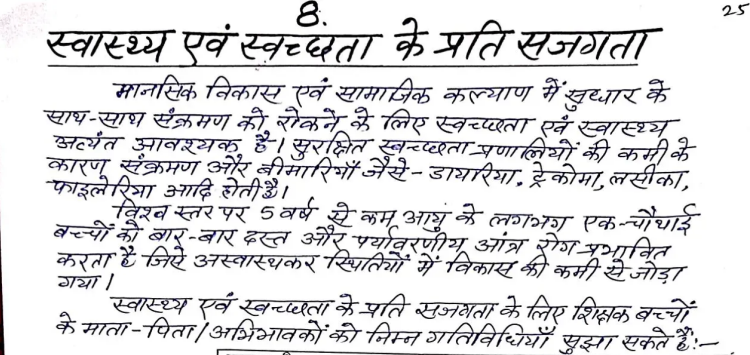 8.
25
स्वास्थ्य एवं स्वच्छता के प्रति सजगता
मानसिक विकास एवं सामाजिक कल्याण में सुधार के
साथ-साथ संक्रमण को रोकने के लिए स्वच्छता एवं स्वास्थ्य
अत्यंत आवश्यक है। सुरक्षित स्वच्छता प्रणालियों की कमी के
कारण संक्रमण और बीमारियाँ जैसे- डायरिया, ट्रेकोमा, लसीका,
फाइलेरिया आदि होती है।
विश्व स्तर पर 5 वर्ष से कम आयु के लगभग एक-चौथाई
बच्चों को बार-बार दस्त और पर्यावरणीय आंत्र रोग प्रभावित
करता है जिऐ अस्वास्थकर स्थितियों में विकास की कमी से जोड़ा
गया।
स्वास्थ्य एवं स्वच्छता के प्रति सजगता के लिए शिक्षक बच्चों
के माता-पिता/अभिभावकों को निम्न गतिविधियाँ सुझा सकते हैं:-